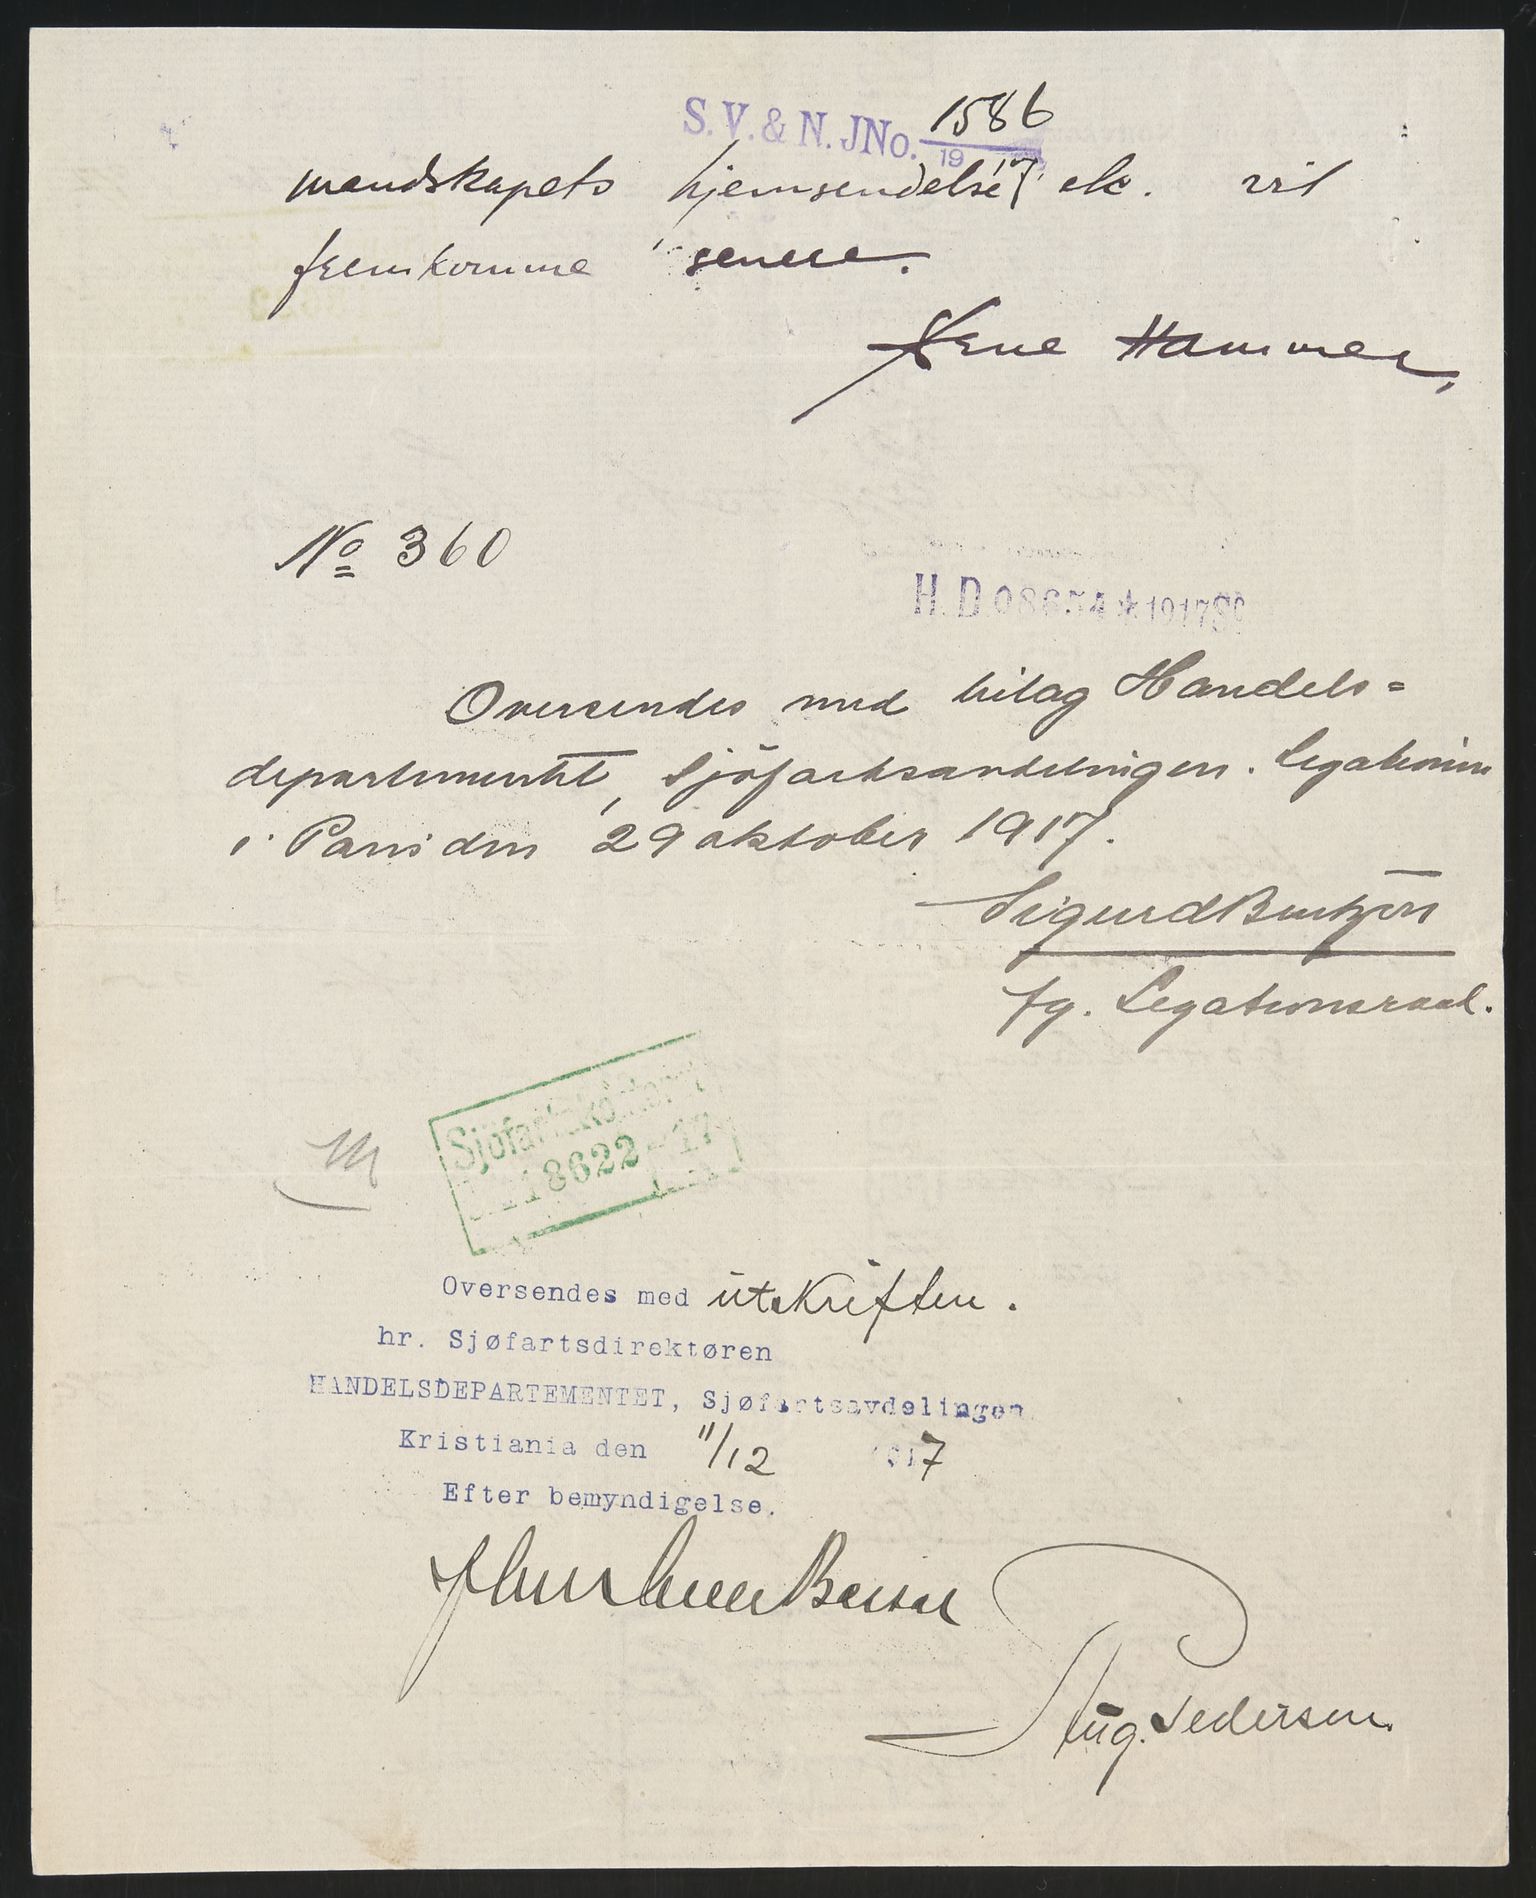 S. V. & N. JNo. 1586
1917
mandskapets hjemsendelse etc. vil
fremkomme senere.
Arne Hammer,
No 360
H. D. 08654 * 1917 S
Oversendes med bilag Handels=
departementet, Sjöfartsavdelingen. Legationen
i Paris den 29 oktober 1917.
Sigurd Bentzon
fg. Legationsraad.
Sjøfartskontoret
18622 - 17
Oversendes med utskriften.
hr. Sjøfartsdirektøren
HANDELSDEPARTEMENTET, Sjøfartsavdelingen
Kristiania den 11/12 1917
Efter bemyndigelse.
Aug. Pedersen.